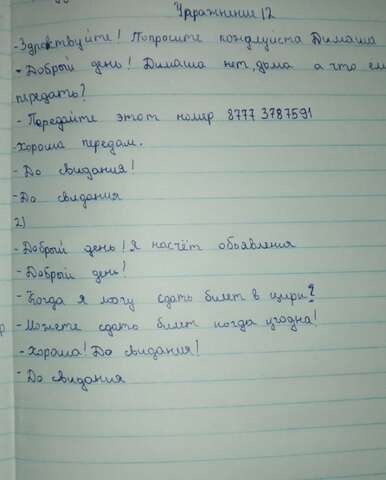 Упражнение 12
- Здравствуйте! Попросите пождлуйста Димаша
- Добрый день! Димаша нет дома а что ем
передать?
- Передайте этот номер 8777 3787591
Хороша передам.
- До свидания!
- До свидания
2)
- Добрый день! Я насчёт обьявления
- Добрый день!
- Когда я могу сдать билет в цирк?
- Можете сдать билет когда угодна!
- Хороша! До свидания!
- До свидания